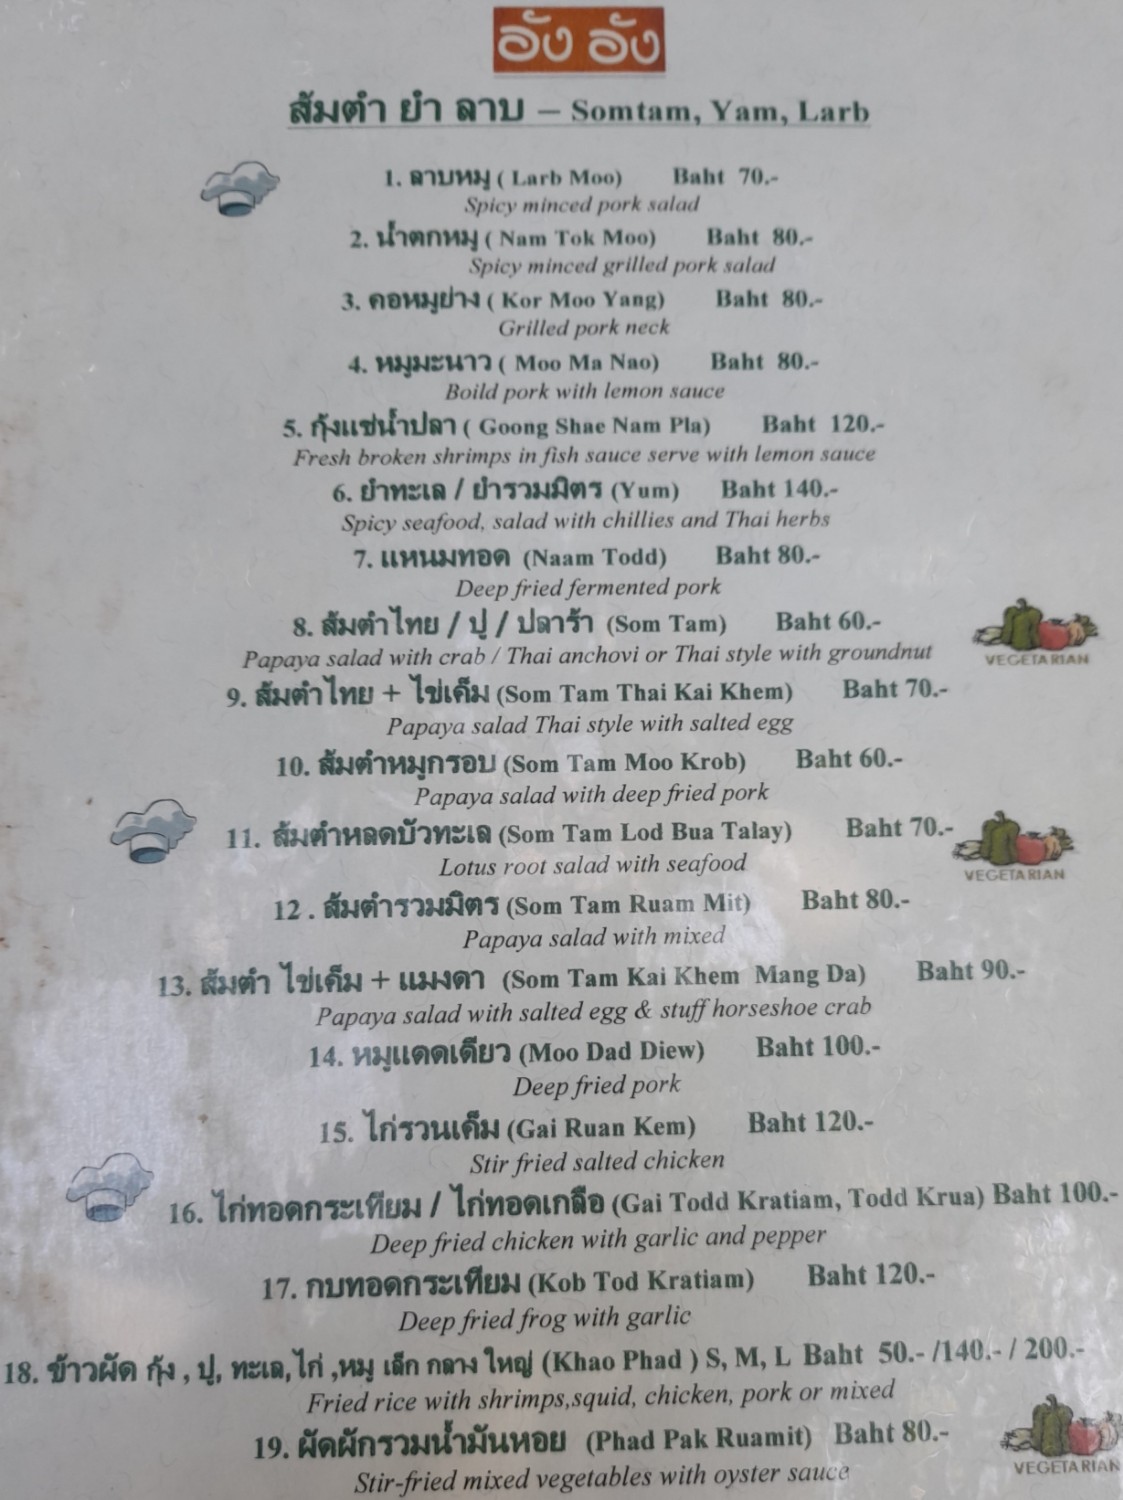 อัง อัง
ส้มตำ ยำ ลาบ – Somtam, Yam, Larb
1. ลาบหมู ( Larb Moo) Baht 70.-
Spicy minced pork salad
2. น้ำตกหมู ( Nam Tok Moo) Baht 80.-
Spicy minced grilled pork salad
3. คอหมูย่าง ( Kor Moo Yang) Baht 80.-
Grilled pork neck
4. หมูมะนาว ( Moo Ma Nao) Baht 80.-
Boild pork with lemon sauce
5. กุ้งแช่น้ำปลา ( Goong Shae Nam Pla) Baht 120.-
Fresh broken shrimps in fish sauce serve with lemon sauce
6. ยำทะเล / ยำรวมมิตร (Yum) Baht 140.-
Spicy seafood, salad with chillies and Thai herbs
7. แหนมทอด (Naam Todd) Baht 80.-
Deep fried fermented pork
8. ส้มตำไทย / ปู / ปลาร้า (Som Tam) Baht 60.-
Papaya salad with crab / Thai anchovi or Thai style with groundnut
VEGETARIAN
9. ส้มตำไทย + ไข่เค็ม (Som Tam Thai Kai Khem) Baht 70.-
Papaya salad Thai style with salted egg
10. ส้มตำหมูกรอบ (Som Tam Moo Krob) Baht 60.-
Papaya salad with deep fried pork
11. ส้มตำหลดบัวทะเล (Som Tam Lod Bua Talay) Baht 70.-
Lotus root salad with seafood
VEGETARIAN
12 . ส้มตำรวมมิตร (Som Tam Ruam Mit) Baht 80.-
Papaya salad with mixed
13. ส้มตำ ไข่เค็ม + แมงดา (Som Tam Kai Khem Mang Da) Baht 90.-
Papaya salad with salted egg & stuff horseshoe crab
14. หมูแดดเดียว (Moo Dad Diew) Baht 100.-
Deep fried pork
15. ไก่รวนเค็ม (Gai Ruan Kem) Baht 120.-
Stir fried salted chicken
16. ไก่ทอดกระเทียม / ไก่ทอดเกลือ (Gai Todd Kratiam, Todd Krua) Baht 100.-
Deep fried chicken with garlic and pepper
17. กบทอดกระเทียม (Kob Tod Kratiam) Baht 120.-
Deep fried frog with garlic
18. ข้าวผัด กุ้ง , ปู, ทะเล, ไก่ ,หมู เล็ก กลาง ใหญ่ (Khao Phad ) S, M, L Baht 50.- /140.- / 200.-
Fried rice with shrimps,squid, chicken, pork or mixed
19. ผัดผักรวมน้ำมันหอย (Phad Pak Ruamit) Baht 80.-
Stir-fried mixed vegetables with oyster sauce
VEGETARIAN